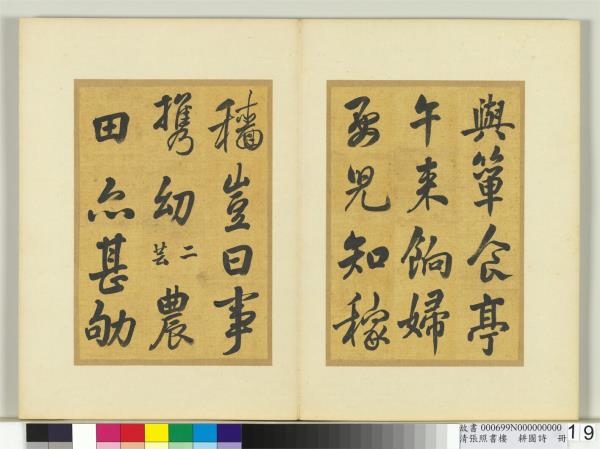 與簞食亭
午来餉婦
要兒知稼
穡豈日事
携幼 二芸 農
田亦甚劬
故書 000699N000000000
清張照書樓 耕圖詩 冊
19